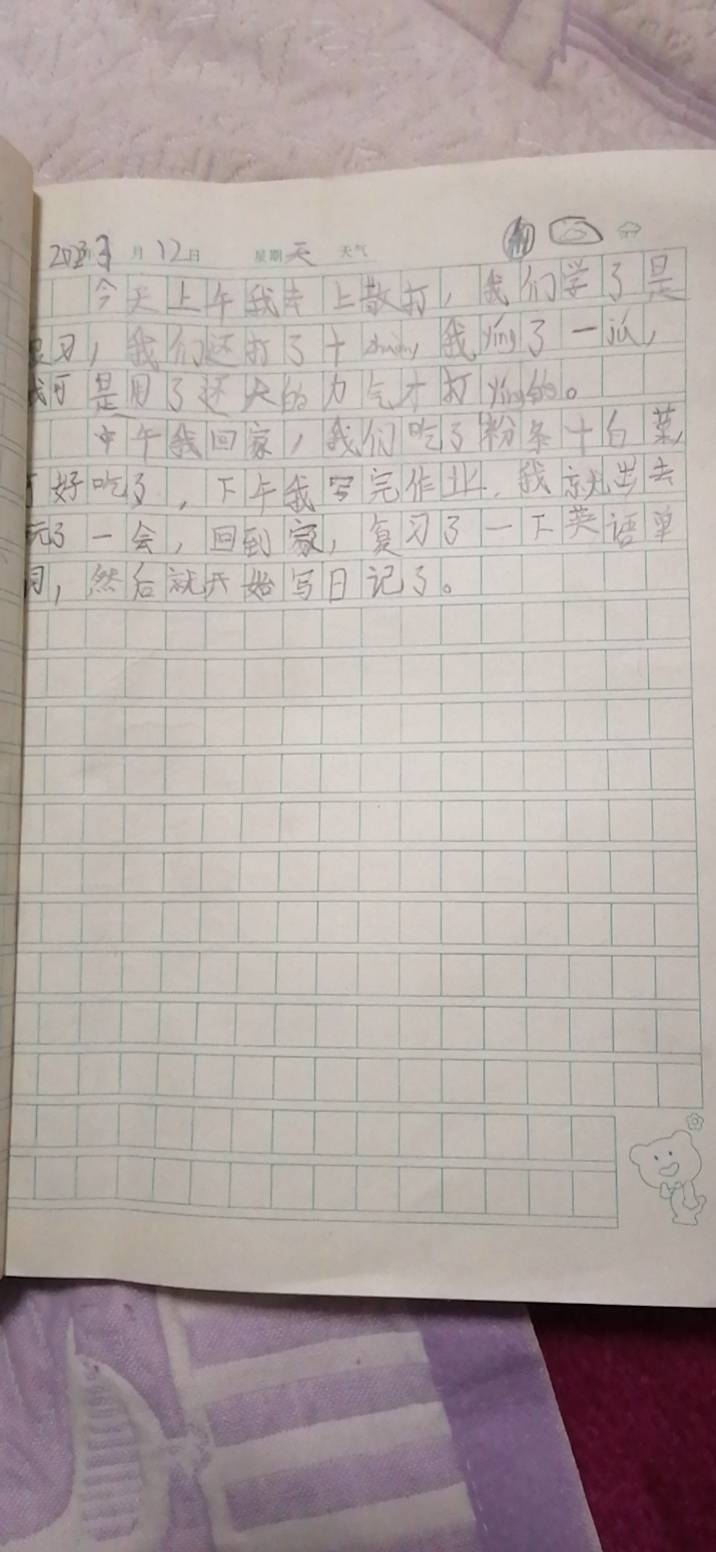 2023年3月12日 星期天 天气
今天上午我去上散打，我们学了是
习，我们还打了十 我ying了一爪，
我可是用了还大的力气才打ying的。
中午我回家，我们吃了粉条十白菜，
可好吃了，下午我写完作业，我就出去
玩了一会，回到家，复习了一下英语单
词，然后就开始写日记了。